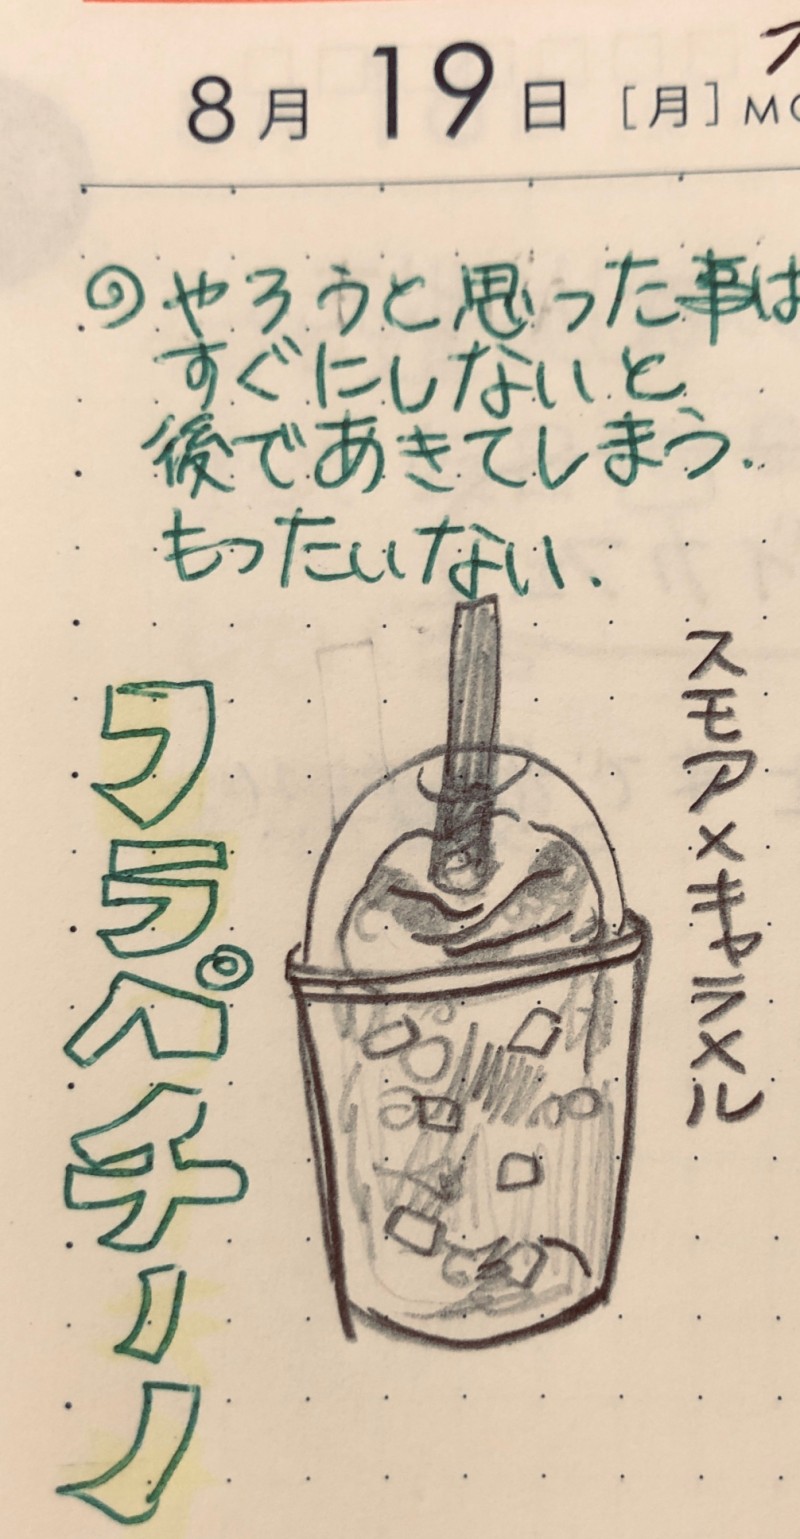 8月19日[月]MO
◎やろうと思った事は
すぐにしないと
後であきてしまう.
もったいない.
フラペチーノ
スモア×キャラメル